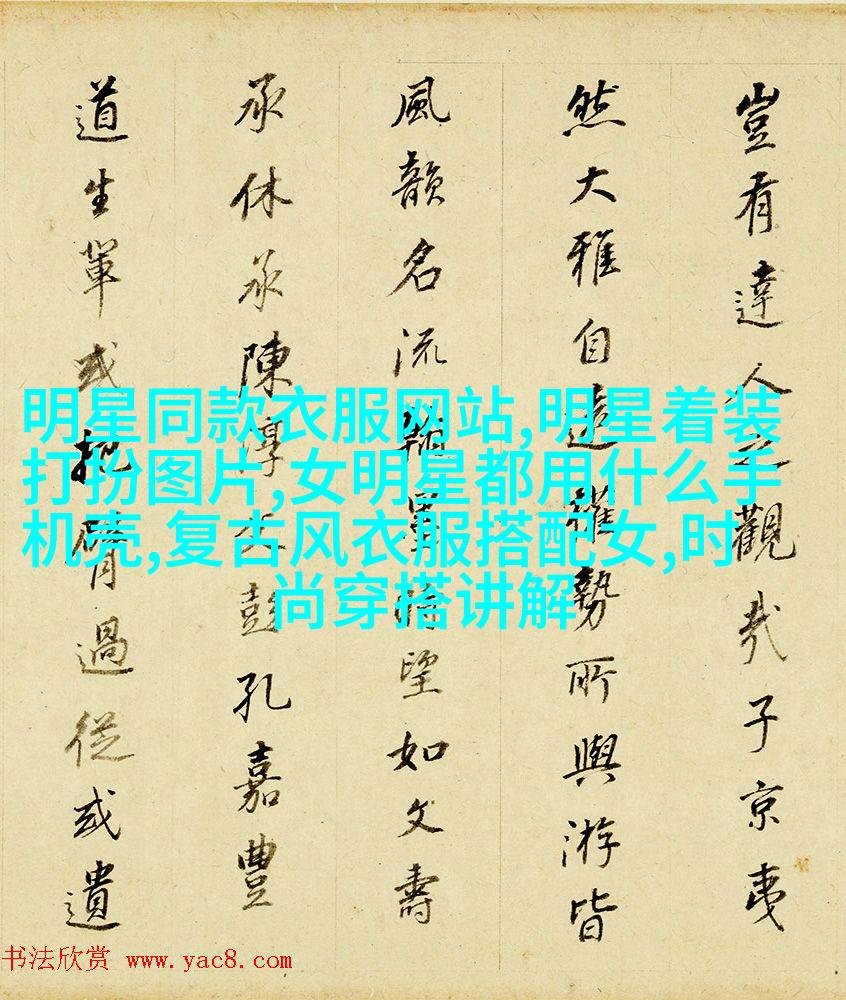 豈有達人之觀哉子京夷
然大雅自遠權勢所與游皆
風韻名流翰墨時望如文壽
承休承陳淳父彭孔嘉豐
道生輩或把臂過從或遺
明星同款衣服网站,明星着装
打扮图片,女明星都用什么手
机壳,复古风衣服搭配女,时
尚穿搭讲解
书法欣赏 www.yac8.com